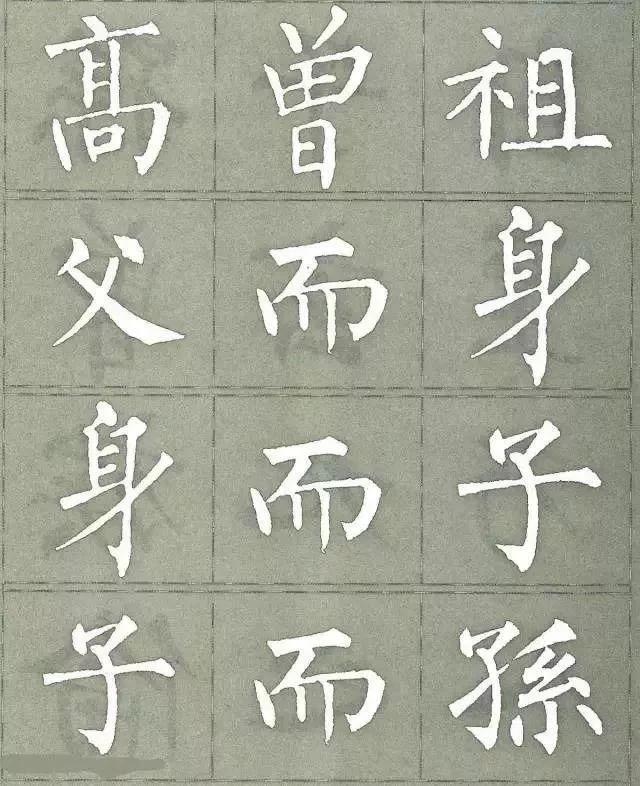 高曾祖
父而身
身而子
子而孫